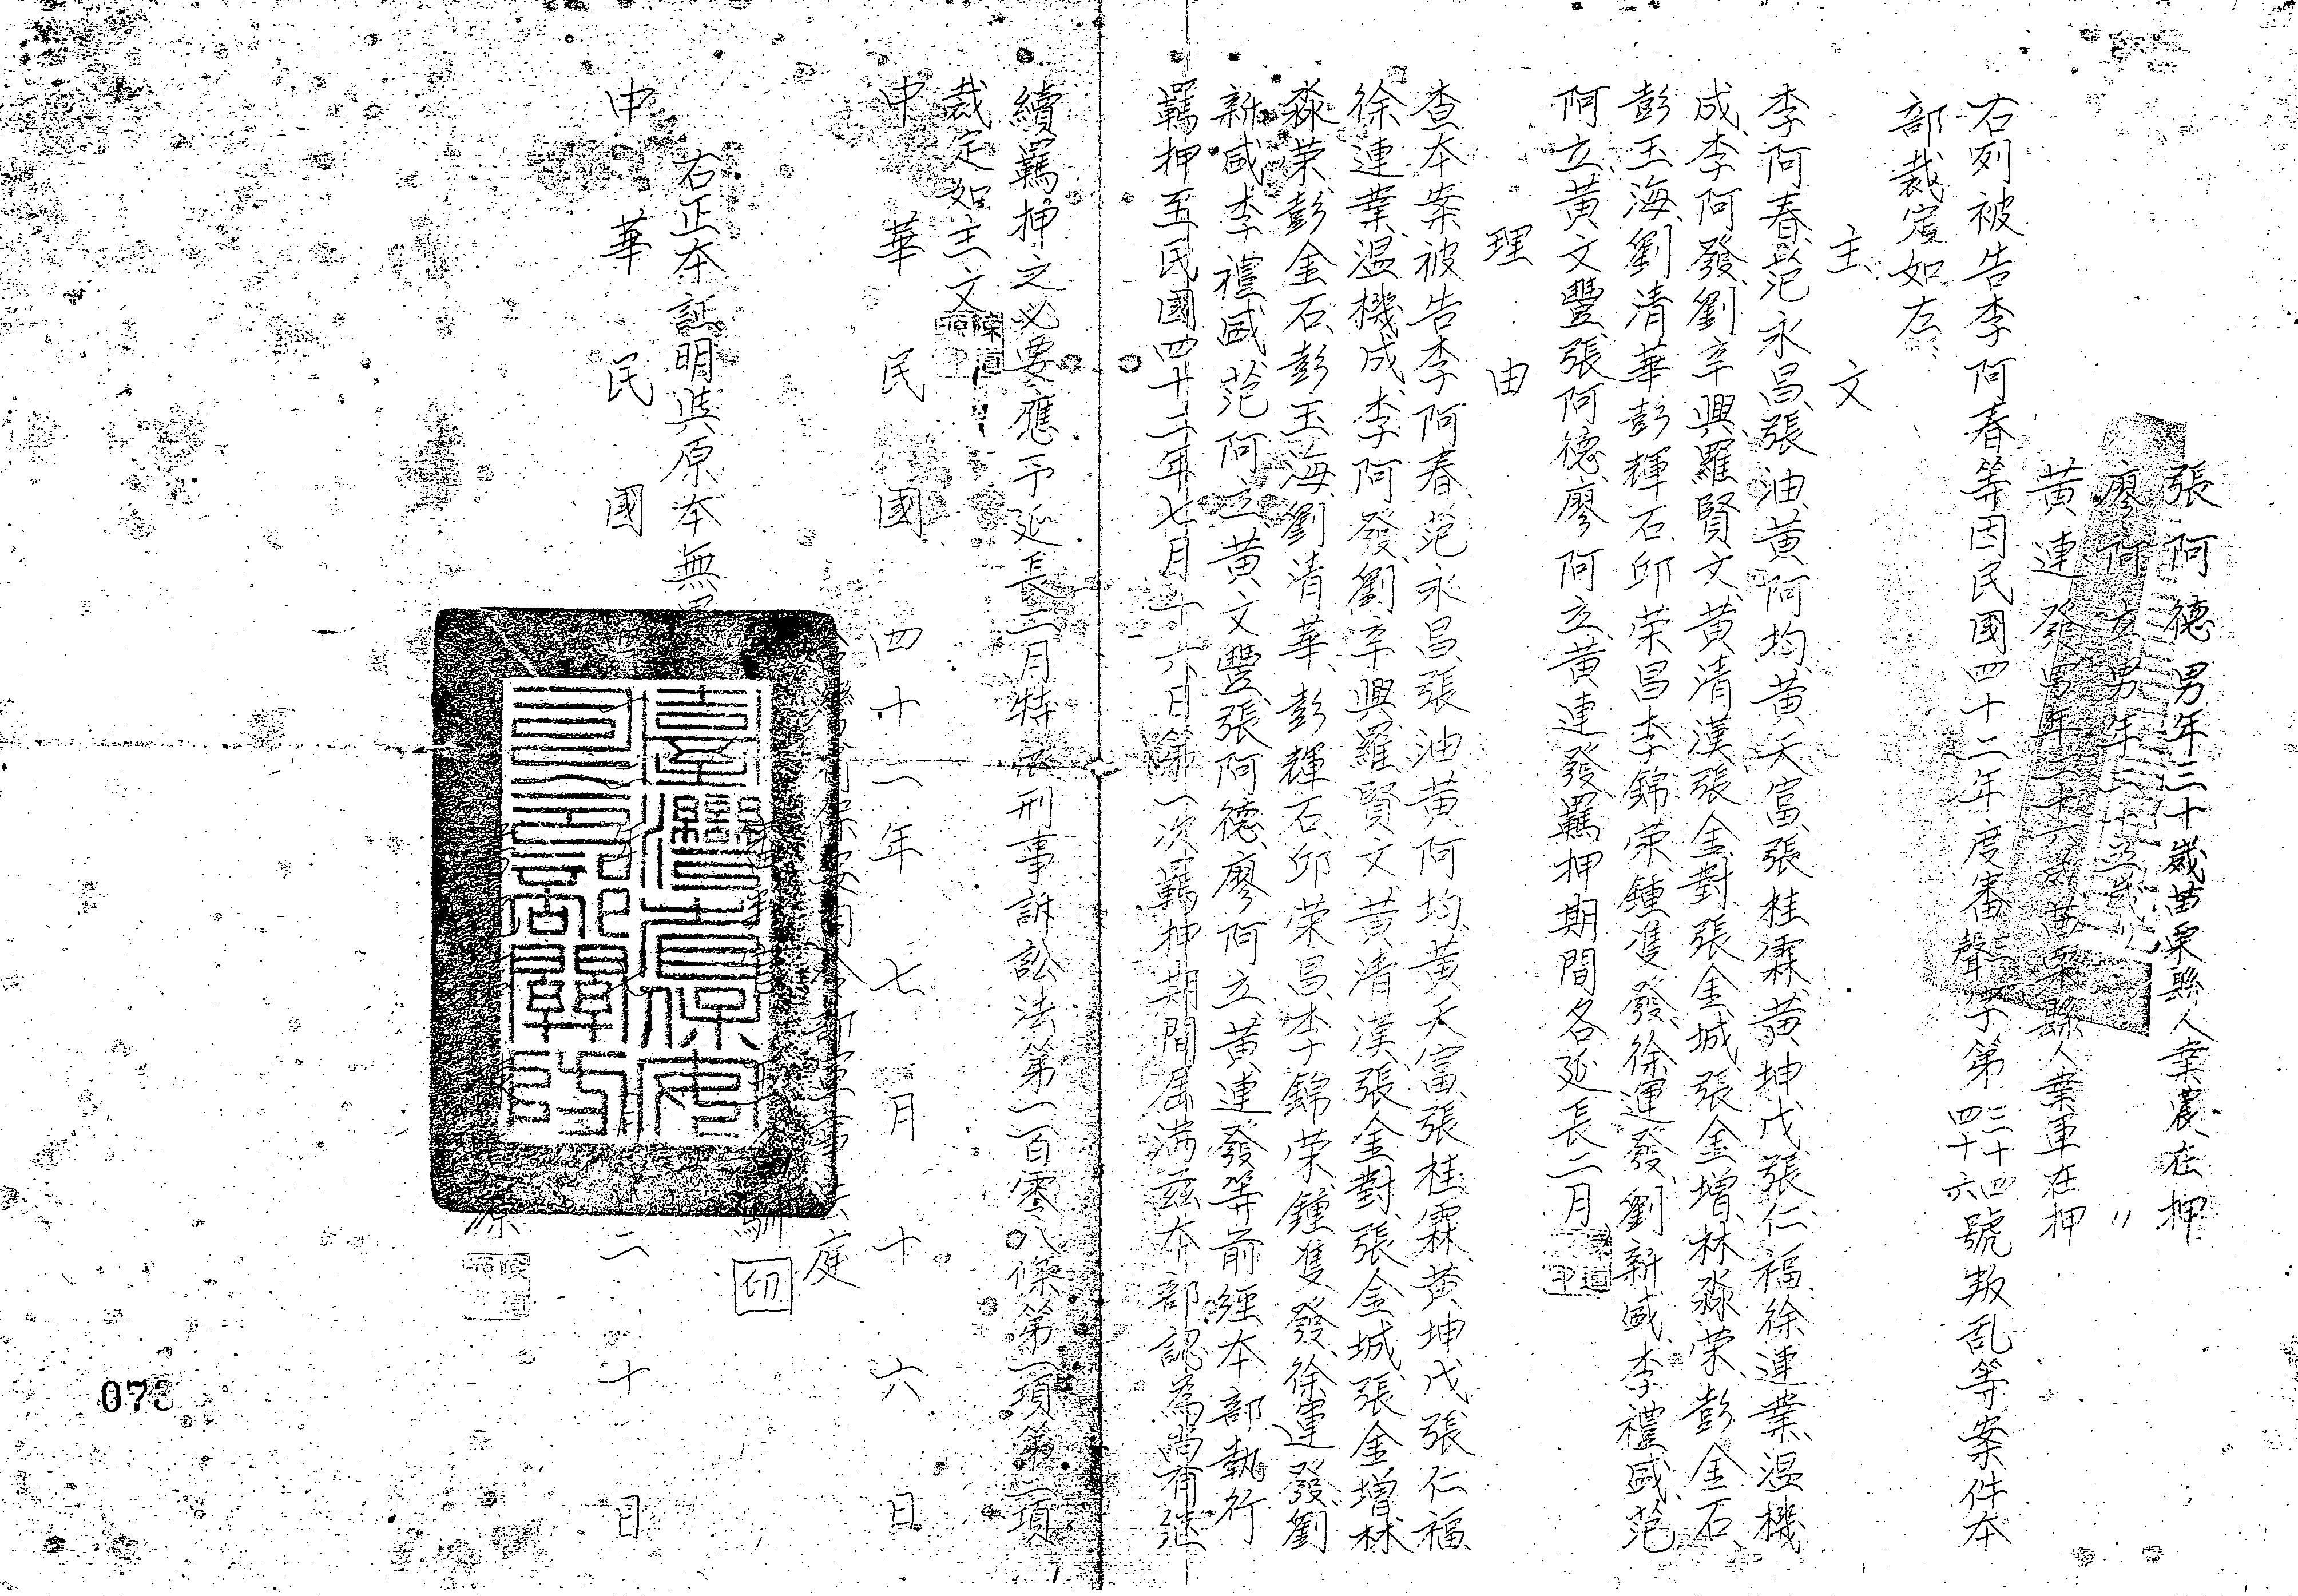 張阿德男年三十歲苗栗縣人業農在押
廖阿立男年二十五歲〃
黃連發男年二十六歲苗栗縣人業軍在押
右列被告李阿春等因民國四十二年度審三聲字第三十四四十六號叛乱等案件本
部裁定如左：
主文
李阿春、范永昌、張油、黃阿均、黃天富、張桂霖、黃坤戊、張仁福、徐連業、温機
成、李阿發、劉辛興、羅賢文、黃清漢、張金對、張金城、張金增、林淼荣、彭金石、
彭玉海、劉清華、彭輝石、邱荣昌、李錦荣、鍾隻發、徐運發、劉新盛、李禮盛、范
阿立、黃文豐、張阿德、廖阿立、黃連發羈押期間各延長二月
理由
查本案被告李阿春、范永昌、張油、黃阿均、黃天富、張桂霖、黃坤戊、張仁福、
徐連業、温機成、李阿發、劉辛興、羅賢文、黃清漢、張金對、張金城、張金增、林
淼荣、彭金石、彭玉海、劉清華、彭輝石、邱荣昌、李錦荣、鍾隻發、徐運發、劉
新盛、李禮盛、范阿立、黃文豐、張阿德、廖阿立、黃連發等前經本部執行
羈押至民國四十二年七月十六日第一次羈押期間屆滿茲本部認為尚有继
續羈押之必要應予延長二月特依刑事訴訟法第一百零八條第一項第二項
裁定如主文
中華民國四十二年七月十六日
台灣省保安司令部軍事法庭
印
右正本証明與原本無異
中華民國 二十日
073